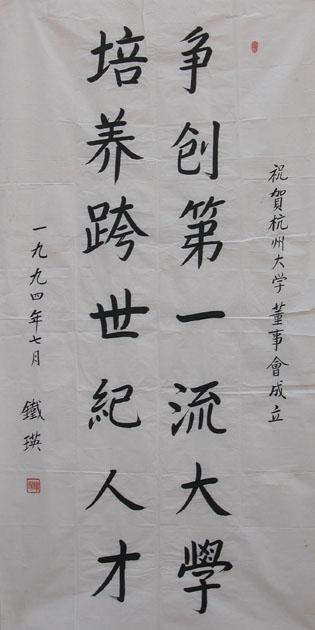 祝賀杭州大学董事會成立
争创第一流大學
培养跨世紀人才
一九九四年七月 鐵瑛